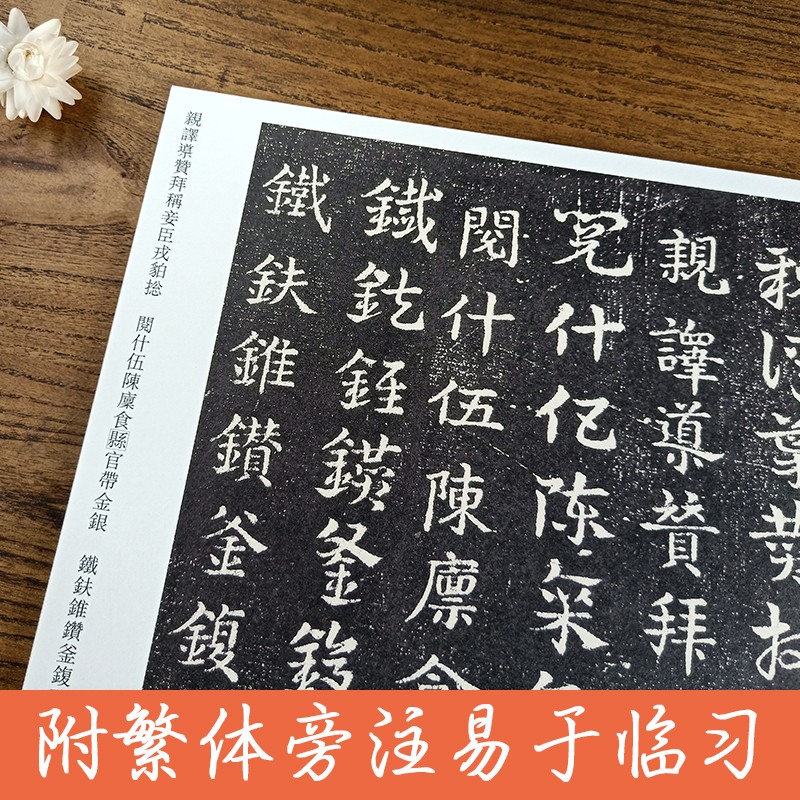 親譯導贊拜
閱什伍陳廩
閱什伍陳廩食
鐵鈇錐鑽釜鍑
鐵鈇錐鑽釜鍑
親譯導贊拜稱妾臣戎貊捴 閱什伍陳廩食縣官帶金銀 鐵鈇錐鑽釜鍑
附繁体旁注易于临习